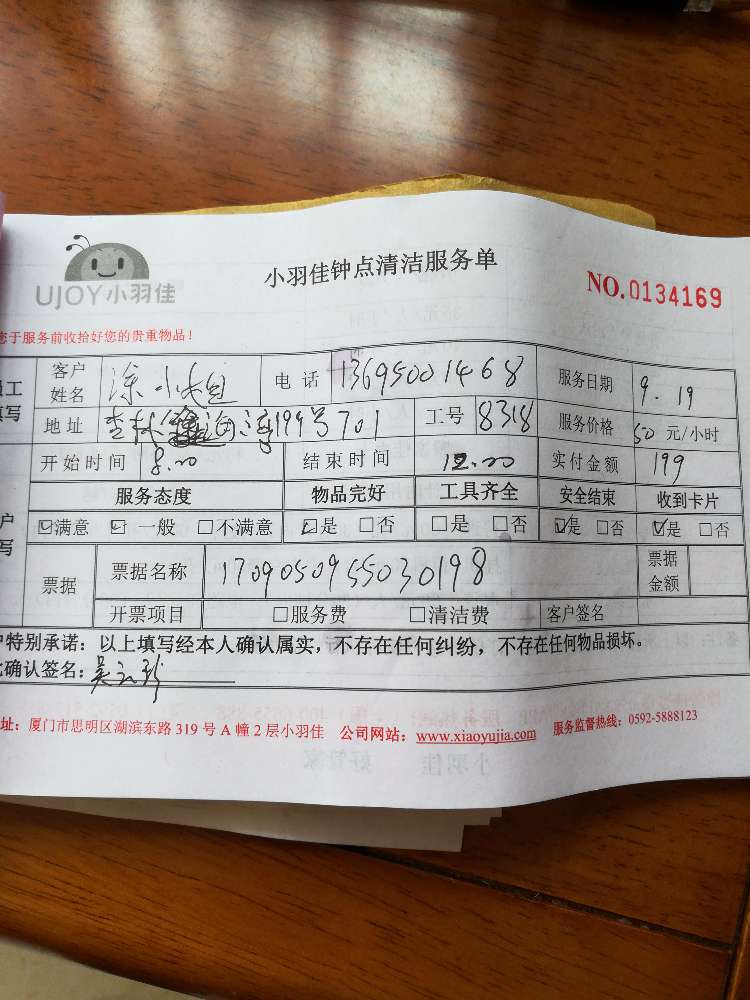 UJOY小羽佳
小羽佳钟点清洁服务单
NO.0134169
于服务前收拾好您的贵重物品！
客户姓名 涂小姐 电话 13695001468 服务日期 9.19
地址 杏林 199号701 工号 8318 服务价格 50 元/小时
开始时间 8.00 结束时间 12.00 实付金额 199
服务态度 物品完好 工具齐全 安全结束 收到卡片
☑满意 ☑一般 □不满意 ☑是 □否 □是 □否 ☑是 □否 ☑是 □否
票据 票据名称 1709050955030198 票据金额
开票项目 □服务费 □清洁费 客户签名
特别承诺：以上填写经本人确认属实，不存在任何纠纷，不存在任何物品损坏。
确认签名：
址：厦门市思明区湖滨东路 319 号 A 幢 2 层小羽佳 公司网站：www.xiaoyujia.com 服务监督热线：0592-5888123